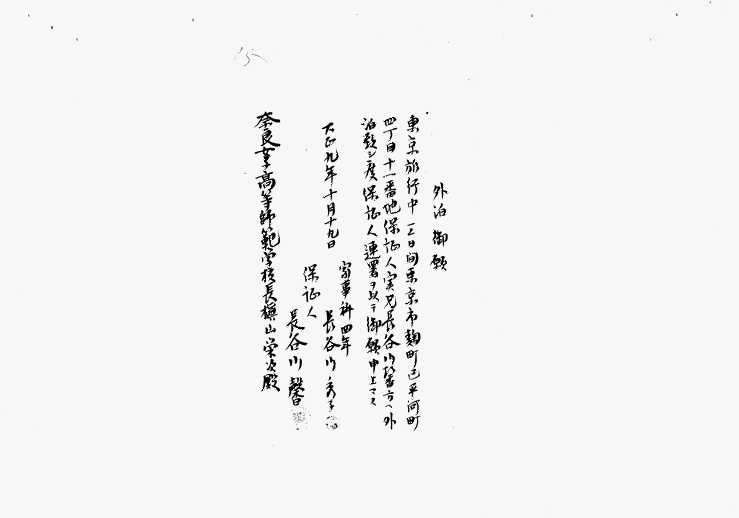 外泊御願
東京旅行中一二日間東京市麹町区平河町
四丁目十一番地保証人実兄長谷川馨方ヘ外
泊致シ度保証人連署ヲ以テ御願申上マス
大正九年十月十九日
家事科四年
長谷川秀子
保証人
長谷川馨
奈良女子高等師範学校長槇山栄次殿